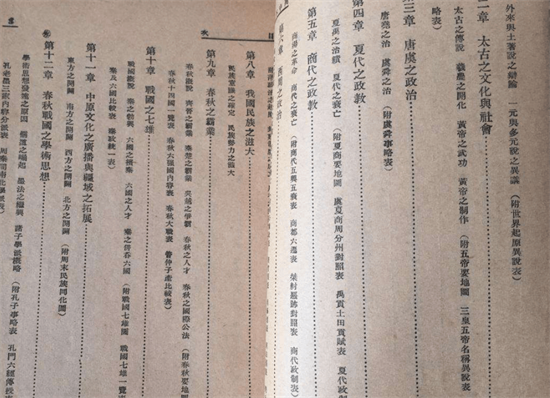 外來與土著說之辯論 一元與多元說之異議 (附世界起原異說表)
二章 太古之文化與社會
太古之傳說 羲農之開化 黃帝之武功 黃帝之制作 (附五帝要地圖 三皇五帝名稱異說表
略表)
三章 唐虞之政治
唐堯之治 虞舜之治 (附虞舜事略表)
第四章 夏代之政教
夏禹之治績 夏代之衰亡 (附夏商要地圖 虞夏商周分州對照表 禹貢土田貢賦表 夏代政制
第五章 商代之政教
商湯之革命 商代之衰亡 (附商代五興五衰表 商都六遷表 商代政制表)
第六章
目
次
第八章 我國民族之滋大
民族意識之確定 民族勢力之滋大
第九章 春秋之霸業
春秋觀說 齊晉之霸業 秦楚之霸業 吳越之爭霸 春秋之人才 春秋之國際公法 (附春秋要地圖
春秋十四國一覽表 春秋六種國內容表 春秋大戰表 管仲子產比較表)
第十章 戰國之七雄
戰國觀說 秦之變興 六國之摒秦 六國之人才 秦之併吞六國 (附戰國七雄圖 戰國七雄一覽表
秦兵六國比較表 秦紀統一表)
第十一章 中原文化之廣播與疆域之拓展
東方之開闢 南方之開闢 西方之開闢 北方之開闢 (附周末民族同化圖)
第十二章 春秋戰國之學術思想
學術思想發達之原因 儒道之崛起 墨法之繼興 諸子學說撮略 (附孔子事略表 孔門六經傳授表
孔老墨三家內容分派表